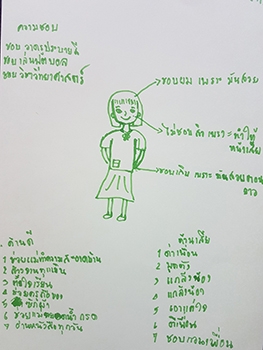 ความชอบ
ชอบ วาดรูประบายสี
ชอบ เล่นฟุตบอล
ชอบ วิชาวิทยาศาสตร์
ชอบผม เพราะ มันสวย
ไม่ชอบสิว เพราะ ทำให้
หน้าเสีย
ชอบเล็บ เพราะ มันสวยตอน
ยาว
ด้านดี
1 ช่วยแม่ทำความสะอาดบ้าน
2 ล้างจานทุกเย็น
3 ตั้งใจเรียน
4 ช่วยครูถือของ
6 ช่วยแม่รดน้ำ
7 อ่านหนังสือทุกวัน
ด้านเสีย
1 ด่าเพื่อน
2 พูดตัว
3 แกล้งน้อง
4 แกล้งน้อง
5 เอาแต่ใจ
6 ตีเพื่อน
7 ชอบกวนเพื่อน